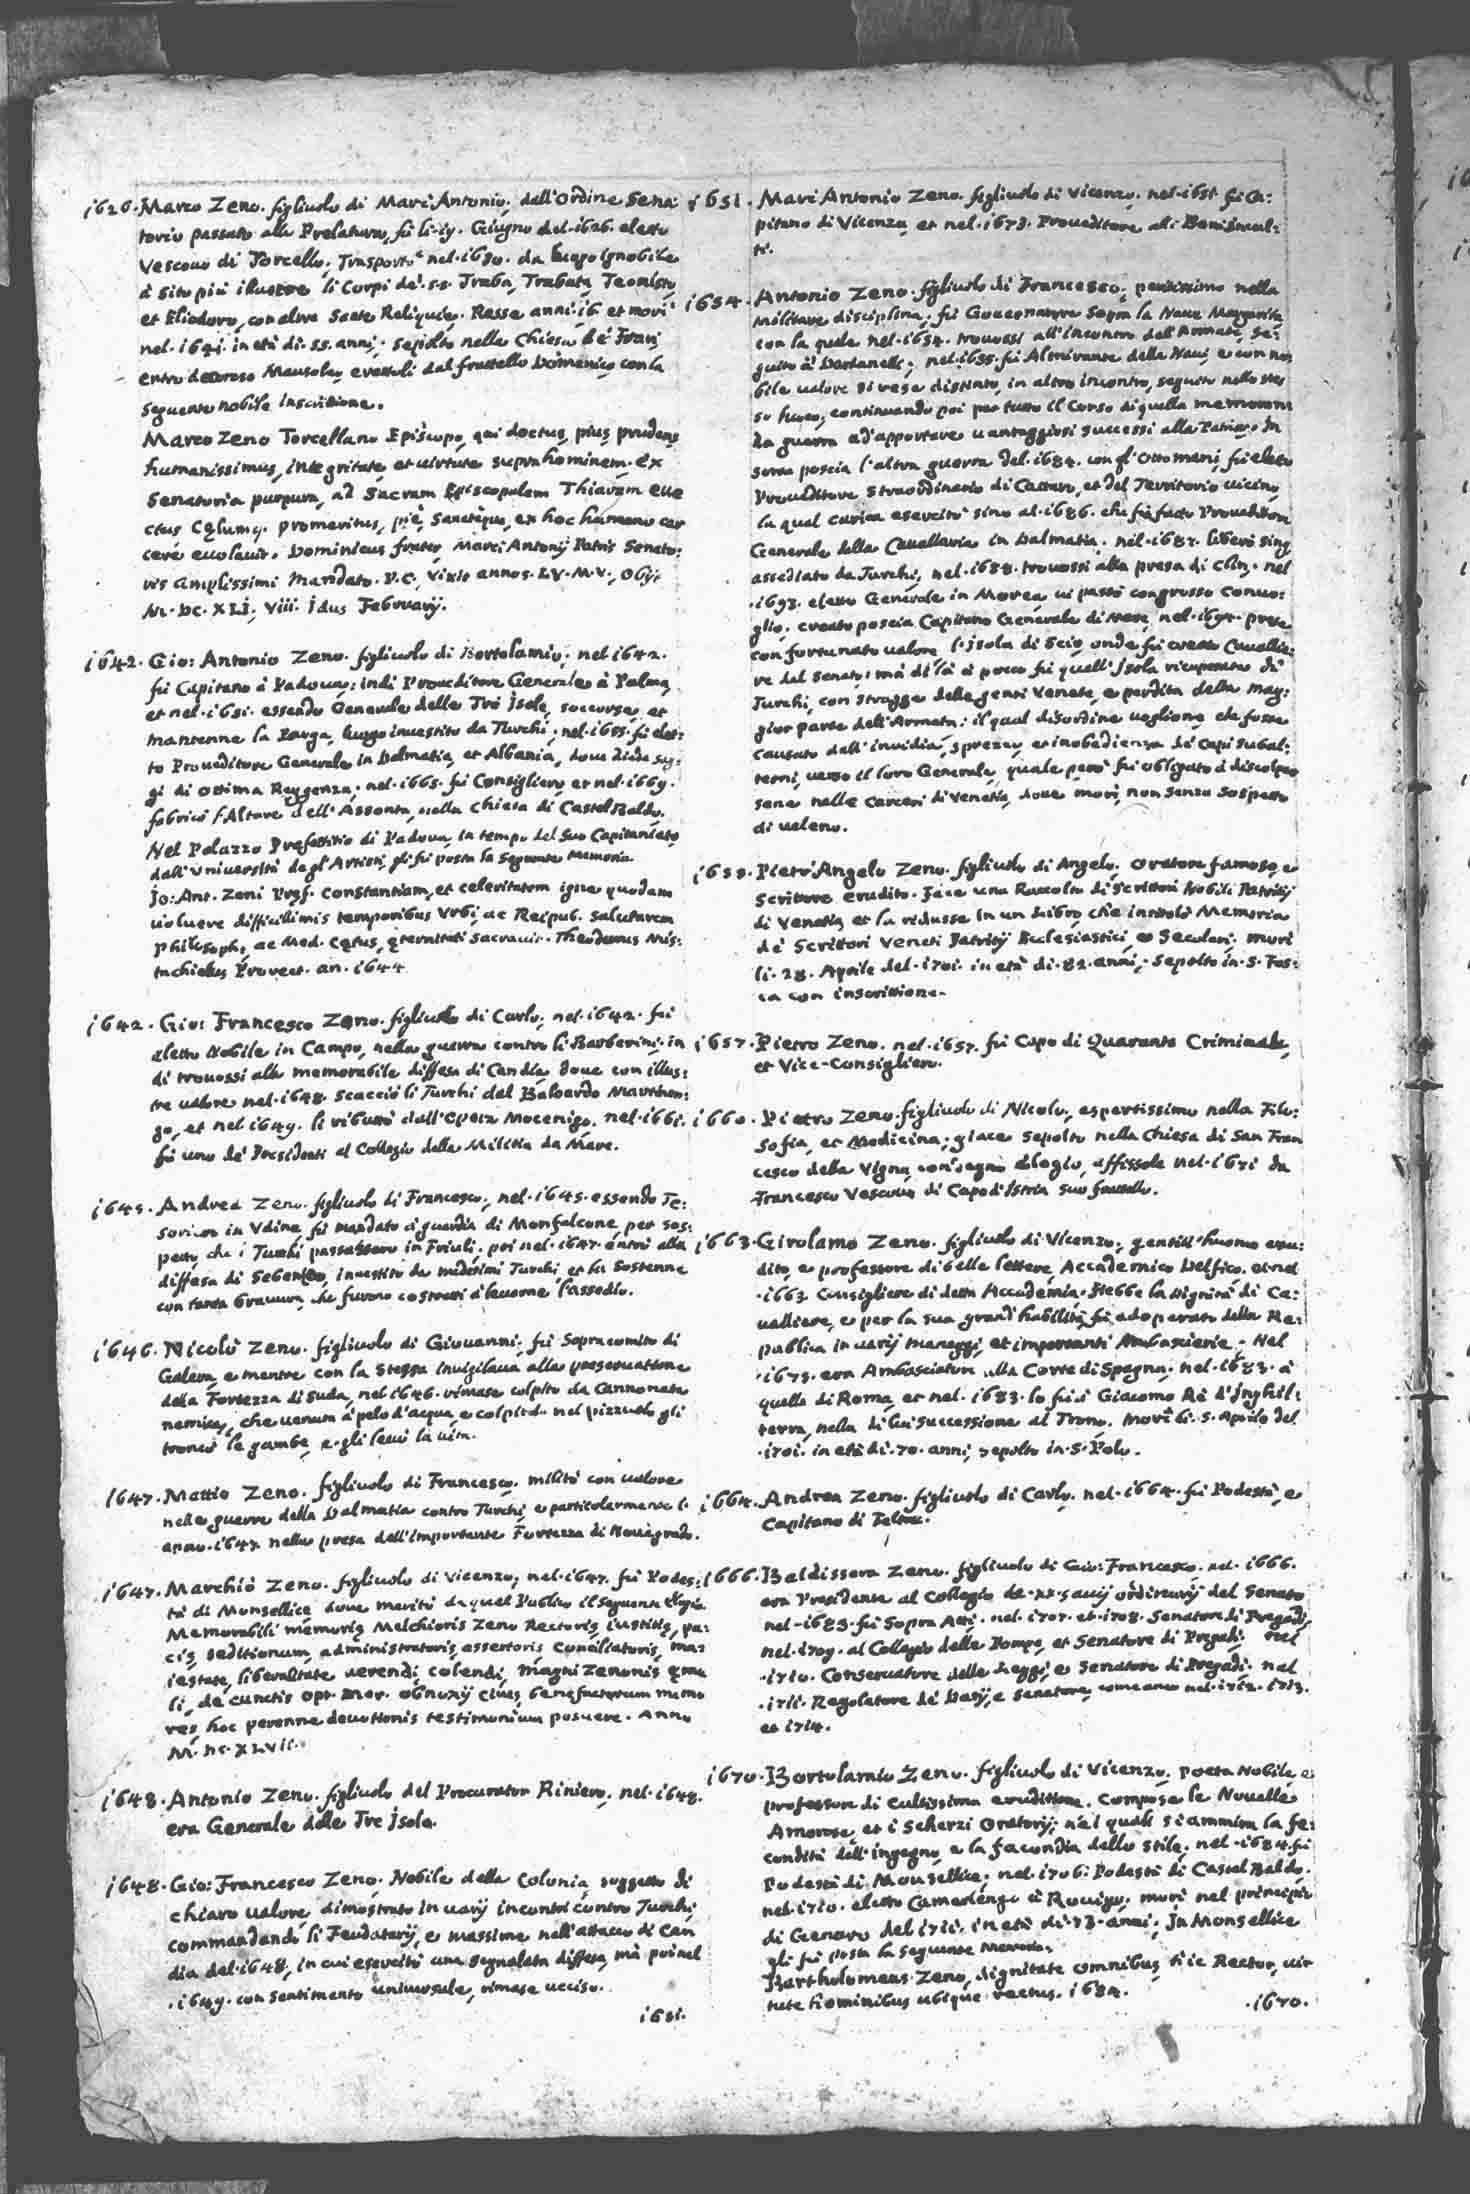 1626. Marco Zeno. figliuolo di Marc'Antonio, dell'Ordine Sena:
torio passato alla Prelatura, fù li 19. Giugno del 1626. eletto
Vescovo di Torcello. Trasportò nel 1630. da luogo ignobile
à sito più illustre li Corpi de' S.S. Traba, Trabata, Teonisto,
et Eliodoro, con altre Sante Reliquie. Resse anni 16 et morì
nel 1641. in età di 55. anni. sepolto nella Chiesa de' Frari
entro decoroso Mausoleo erettoli dal frattello Domenico, con la
seguente nobile inscrittione.
Marco Zeno Torcellano Episcopo, qui doctus, pius, prudens,
humanissimus, integritate, et virtute supra hominem. ex
Senatoria purpura, ad Sacram Episcopalem Thiaram eve
ctus Cęlumq. promeritus, piè, sanctèque, ex hoc humano car
cere evolavit. Dominicus frater, Marci Antonij Patris Senato:
ris amplissimi mandato. P.C. Vixit annos. LV. M.V. Obijt
M. DC. XLI. VIII. idus Februarij.
1642. Gio: Antonio Zeno. figliuolo di Bortolamio. nel 1642.
fù Capitano à Padova: indi Proveditore Generale à Palma,
et nel 1651. essendo Generale delle Tre Isole, soccorse, et
mantenne la Parga, luogo investito da Turchi. nel 1655. fù elet:
to Proveditore Generale in Dalmatia, et Albania, dove diede sag:
gi di ottima Reggenza. nel 1665. fù Consigliere, et nel 1669.
fabricò l'Altare dell'Assonta, nella Chiesa di Castel Baldo.
Nel Palazzo Prefettitio di Padova, in tempo del suo Capitaniato
dall'Università degl'Artisti, gli fù posta la seguente memoria.
Jo: Ant. Zeni Pręf. constantiam, et celeritatem igne quodam
uoluere difficillimis temporibus Urbi, ac Reipub. salutarem
Philosoph. ac Med. Cętus, ęternitati sacravit. Theodorus Mus:
tachidus Provect. an. 1644
1642. Gio: Francesco Zeno. figliuolo di Carlo, nel 1642. fù
eletto Nobile in Campo, nella guerra contro li Barberini. in
di trovossi alla memorabile diffesa di Candia, dove con illus:
tre valore nel 1648. scacciò li Turchi dal Baloardo Martinen:
go, et nel 1649. li ributtò dall'Opera Mocenigo. nel 1661.
fù uno de' Presidenti al Collegio della Militia da Mare.
1645. Andrea Zeno. figliuolo di Francesco, nel 1645. essendo Te:
soriere in Udine, fù mandato à guardia di Monfalcone, per sos:
petto, che i Turchi passassero in Friuli. poi nel 1647. entrò alla
diffesa di Sebenico, investito da medesimi Turchi, et la sostenne
con tanta bravura, che furono costretti à levarne l'assedio.
1646. Nicolò Zeno. figliuolo di Giovanni. fù Sopracomito di
Galera, e mentre con la stessa invigilava alla preservatione
della Fortezza di Suda, nel 1646. rimase colpito da Cannonata
nemica, che venuta à pelo d'acqua, e colpito nel pizzuolo gli
troncò le gambe, e gli levò la vita.
1647. Mattio Zeno. figliuolo di Francesco. militò con valore
nella guerra della Dalmatia contro Turchi, e particolarmente l'
anno 1647. nella presa dell'importante Fortezza di Novegrado.
1647. Marchiò Zeno. figliuolo di Vicenzo, nel 1647. fù Podes:
tà di Monselice, dove meritò da quel Publico il seguente Elogio.
Memorabili memorię Melchioris Zeno Rectoris, iustitię, pa:
cis, seditionum, administratoris, assertoris, conciliatoris, ma:
iestate, liberalitate verendi, colendi, magni Zenonis ęmu
li, de cunctis opt. mer. obnoxij cives, benefactorum memo
res, hoc perenne devotionis testimonium posuere. Anno
M. DC. XLVII.
1648. Antonio Zeno. figliuolo del Procurator Riniero, nel 1648.
era Generale delle Tre Isole.
1648. Gio: Francesco Zeno. Nobile della Colonia, soggetto di
chiaro valore, dimostrato in varij incontri contro Turchi,
commandando li Feudatarij, e massime nell'attacco di Can
dia del 1648, in cui esercitò una segnalata diffesa, mà poi nel
1649. con sentimento universale, rimase ucciso.
1651.
1651. Marc'Antonio Zeno. figliuolo di Vicenzo. nel 1651. fù Ca:
pitano di Vicenza, et nel 1673. Proveditore alli Beni Incul:
ti.
1654. Antonio Zeno. figliuolo di Francesco, peritissimo nella
Militare disciplina, fù Governatore sopra la Nave Margarita
con la quale nel 1654. trovossi all'incontro dell'Armate, se:
guito à' Dardanelli. nel 1655. fù Almirante delle Navi, e con no
bile valore si rese distinto, in altro incontro, seguito nello stes
so luogo, continuando poi per tutto il Corso di quella memoran
da guerra ad'apportare vantaggiosi successi alla Patria. In
sorta poscia l'altra guerra del 1684. con gl'Ottomani, fù eletto
Proveditore straordinario di Cattaro, et del Territorio vicino,
la qual carica esercitò sino al 1686. che fù fatto Proveditor
Generale della Cavallaria in Dalmatia. nel 1687. liberò Sing
assediato da Turchi, nel 1688. trovossi alla presa di Clin. nel
1693. eletto Generale in Morea, vi passò congrosso Convo:
glio. creato poscia Capitano Generale di Mare, nel 1694. prese
con fortunato valore l'Isola di Scio, onde fù creato Cavallie:
re dal Senato: mà di là à poco fù quell'Isola ricuperata da'
Turchi, con stragge delle genti Venete, e perdita della mag:
gior parte dell'Armata: il qual disordine vogliono, che fosse
causato dall'invidia, sprezzo, et inobedienza de' Capi subal:
terni, verso il loro Generale, quale però fù obligato à discolpar
sene nelle Carceri di Venetia, dove morì, non senza sospetto
di veleno.
1655. Pietr'Angelo Zeno. figliuolo di Angelo, oratore famoso, e
scrittore erudito. Fece una Raccolta di Scrittori Nobili Patritij
di Venetia, et la ridusse in un Libro, che intitolò Memoria
de' Scrittori Veneti Patritij Ecclesiastici, e Secolari. morì
li 28. Aprile del 1701. in età di 82. anni. sepolto in S. Fos:
ca con inscrittione.
1657. Pietro Zeno. nel 1657. fù Capo di Quaranta Criminale,
et Vice-Consigliere.
1660. Pietro Zeno. figliuolo di Nicolò, espertissimo nella Filo:
sofia, et Medicina; giace sepolto nella Chiesa di San Fran
cesco della Vigna, con degno Elogio, affissole nel 1671 da
Francesco Vescovo di Capo d'Istria suo fratello.
1663. Girolamo Zeno. figliuolo di Vicenzo, gentil'huomo eru:
dito, e professore di belle lettere, Accademico Delfico. et nel
1663. Consigliere di detta Accademia. Hebbe la dignità di Ca:
valliere, e per la sua grand'habilità, fù adoperato dalla Re:
publica in varij maneggi, et importanti Ambascierie. Nel
1673. era Ambasciatore alla Corte di Spagna. nel 1683. à
quella di Roma, et nel 1683. lo fù à Giacomo Rè d'Inghil:
terra, nella di lui successione al Trono. morì li 5. Aprile del
1701. in età di 70. anni, sepolto in S. Polo.
1664. Andrea Zeno. figliuolo di Carlo. nel 1664. fù Podestà, e
Capitano di Feltre.
1666. Baldissera Zeno. figliuolo di Gio: Francesco. nel 1666.
era Presidente al Collegio de XX. Savij ordinarij del Senato
nel 1683. fù Sopra Atti. nel 1707. et 1708. Senatore di Pregadi,
nel 1709. al Collegio delle Pompe, et Senatore di Pregadi. nel
1710. Conservatore delle Leggi, e Senatore di Pregadi. nel
1711. Regolatore de' Dazij, e Senatore, come anco nel 1712. 1713.
et 1714.
1670. Bortolamio Zeno. figliuolo di Vicenzo, Poeta Nobile, e
professore di cultissima eruditione. Compose le Novelle
Amorose, et i Scherzi Oratorij; nei quali s'ammira la fe:
condità dell'ingegno, e la facondia dello stile. nel 1684. fù
Podestà di Monselice. nel 1706. Podestà di Castel Baldo.
nel 1710. eletto Camerlengo à Rovigo. morì nel principio
di Genaro del 1711. in età di 73. anni. In Monselice
gli fù posta la seguente memoria.
Bartholomeus Zeno, dignitate omnibus, hic Rector, vir
tute hominibus ubique rectus. 1684.
1670.